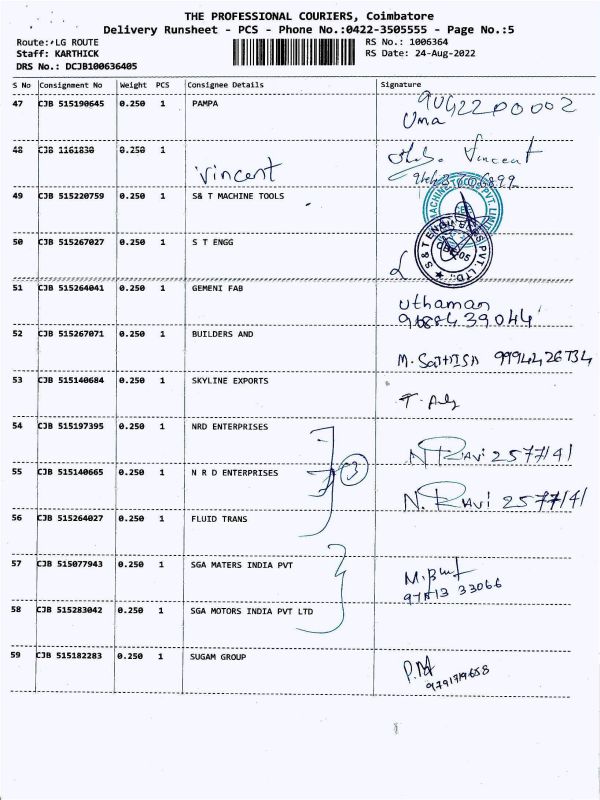 THE PROFESSIONAL COURIERS, Coimbatore
Delivery Runsheet - PCS - Phone No.:0422-3505555 - Page No.:5
Route: LG ROUTE
Staff: KARTHICK
DRS No.: DCJB100636405
RS No.: 1006364
RS Date: 24-Aug-2022
S No Consignment No Weight PCS Consignee Details Signature
47 CJB 515190645 0.250 1 PAMPA
Uma
48 CJB 1161830 0.250 1 Vincent Vincent
49 CJB 515220759 0.250 1 S& T MACHINE TOOLS
50 CJB 515267027 0.250 1 S T ENGG
51 CJB 515264041 0.250 1 GEMENI FAB
uthaman
9688439044
52 CJB 515267071 0.250 1 BUILDERS AND
M. 9994426734
53 CJB 515140684 0.250 1 SKYLINE EXPORTS
54 CJB 515197395 0.250 1 NRD ENTERPRISES
N Ravi 2577/41
55 CJB 515140665 0.250 1 N R D ENTERPRISES 3
N. Ravi 2577/41
56 CJB 515264027 0.250 1 FLUID TRANS
57 CJB 515077943 0.250 1 SGA MATERS INDIA PVT
58 CJB 515283042 0.250 1 SGA MOTORS INDIA PVT LTD
59 CJB 515182283 0.250 1 SUGAM GROUP
9791719658